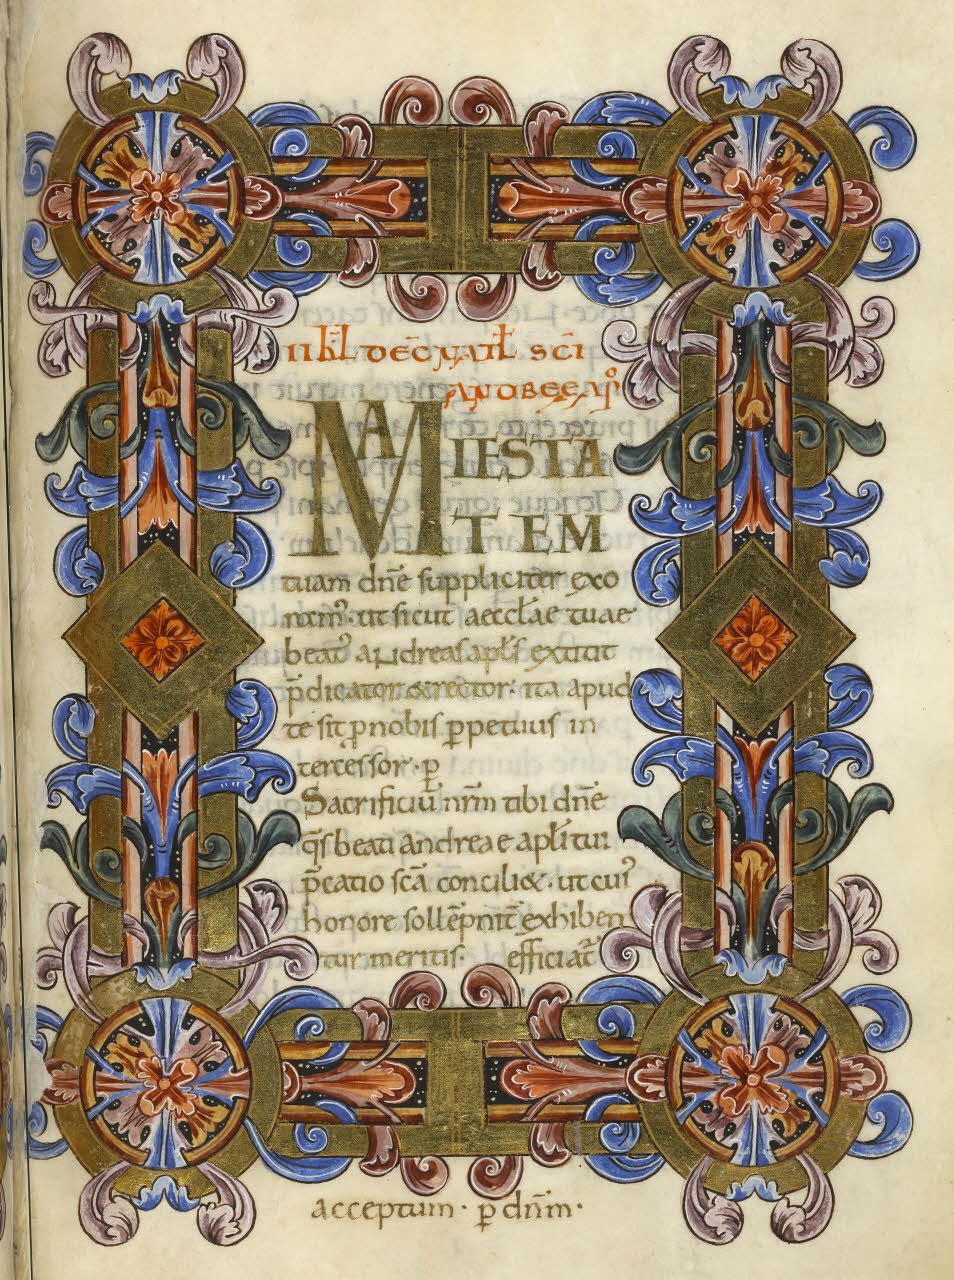 II KL DEC NATL SCI
ANDREE APLI
MAIESTA
TEM
tuam dn̄e suppliciter exo
ram⁹· ut sicut aeccl̄ae tuae
beat⁹ andreas apl̄s extitit
p̄dicator & rector· ita apud
te sit p nobis ꝑpetuus in
tercessor· ꝑ
Sacrificiū nr̄m tibi dn̄e
q̄s beati andreae apl̄i tui
p̄catio sc̄a conciliet· ut cui⁹
honore sollēpnit̄ exhiben
tur meritis· efficiat̄
acceptum· ꝑ dn̄m·